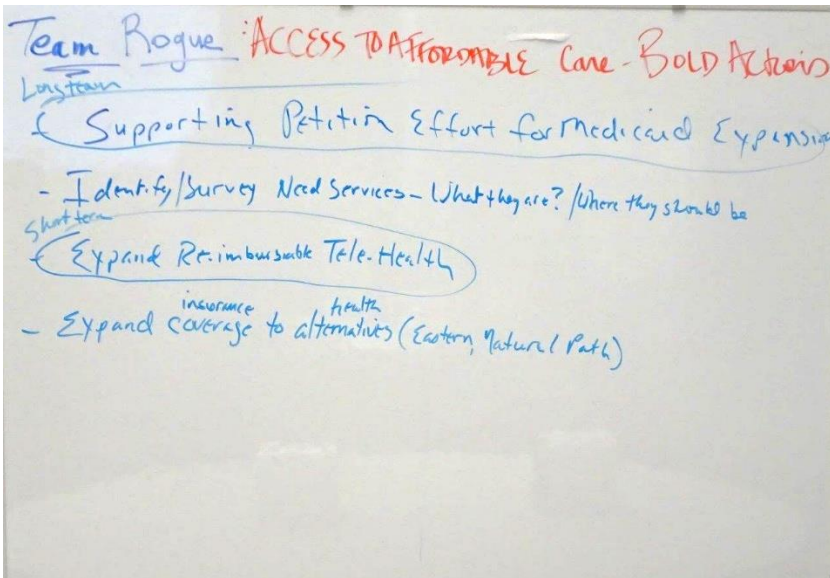 Team Rogue: ACCESS TO AFFORDABLE Care - BOLD Actions
Long term
- Supporting Petition Effort for Medicaid Expansion
- Identify/Survey Need Services - What they are? /Where they should be
Short term
- Expand Reimbursable Tele-Health
insurance health
- Expand coverage to alternatives (Eastern, Natural Path)